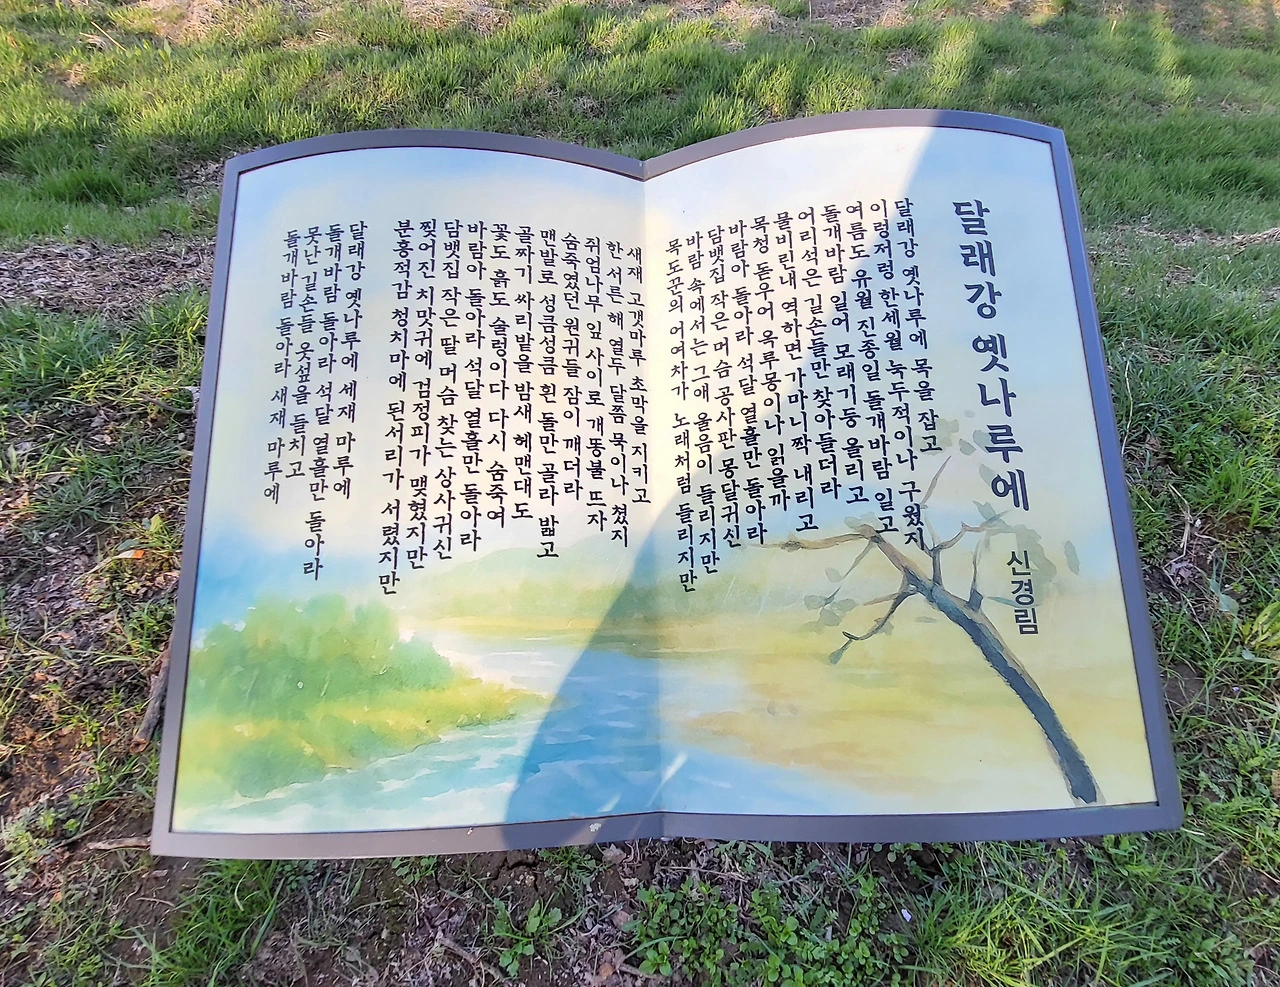 달래강 옛나루에
신경림
달래강 옛나루에 목을 잡고
이렁저렁 한세월 녹두적이나 구웠지
여름도 유월 진종일 돌개바람 일고
돌개바람 일어 모래기둥 올리고
어리석은 길손들만 찾아들더라
물비린내 역하면 가마니짝 내리고
목청 돋우어 옥루몽이나 읽을까
바람아 돌아라 석달 열흘만 돌아라
담뱃집 작은머슴 공사판 몽달귀신
바람 속에서는 그애 울음이 들리지만
목도꾼의 어여차가 노래처럼 들리지만
새재 고갯마루 초막을 지키고
한 서른 해 열두 달쯤 묵이나 쳤지
쥐엄나무 잎 사이로 개똥불 뜨자
숨죽였던 원귀들 잠이 깨더라
맨발로 성큼성큼 흰 돌만 골라 밟고
골짜기 싸리밭을 밤새 헤맨대도
꽃도 흙도 술렁이다 다시 숨죽여
바람아 돌아라 석달 열흘만 돌아라
담뱃집 작은 딸 머슴 찾는 상사귀신
찢어진 치맛귀에 검정피가 맺혔지만
분홍적감 청치마에 된서리가 서렸지만
달래강 옛나루에 세재 마루에
돌개바람 돌아라 석달 열흘만 돌아라
못난 길손들 옷섶을 들치고
돌개바람 돌아라 새재 마루에